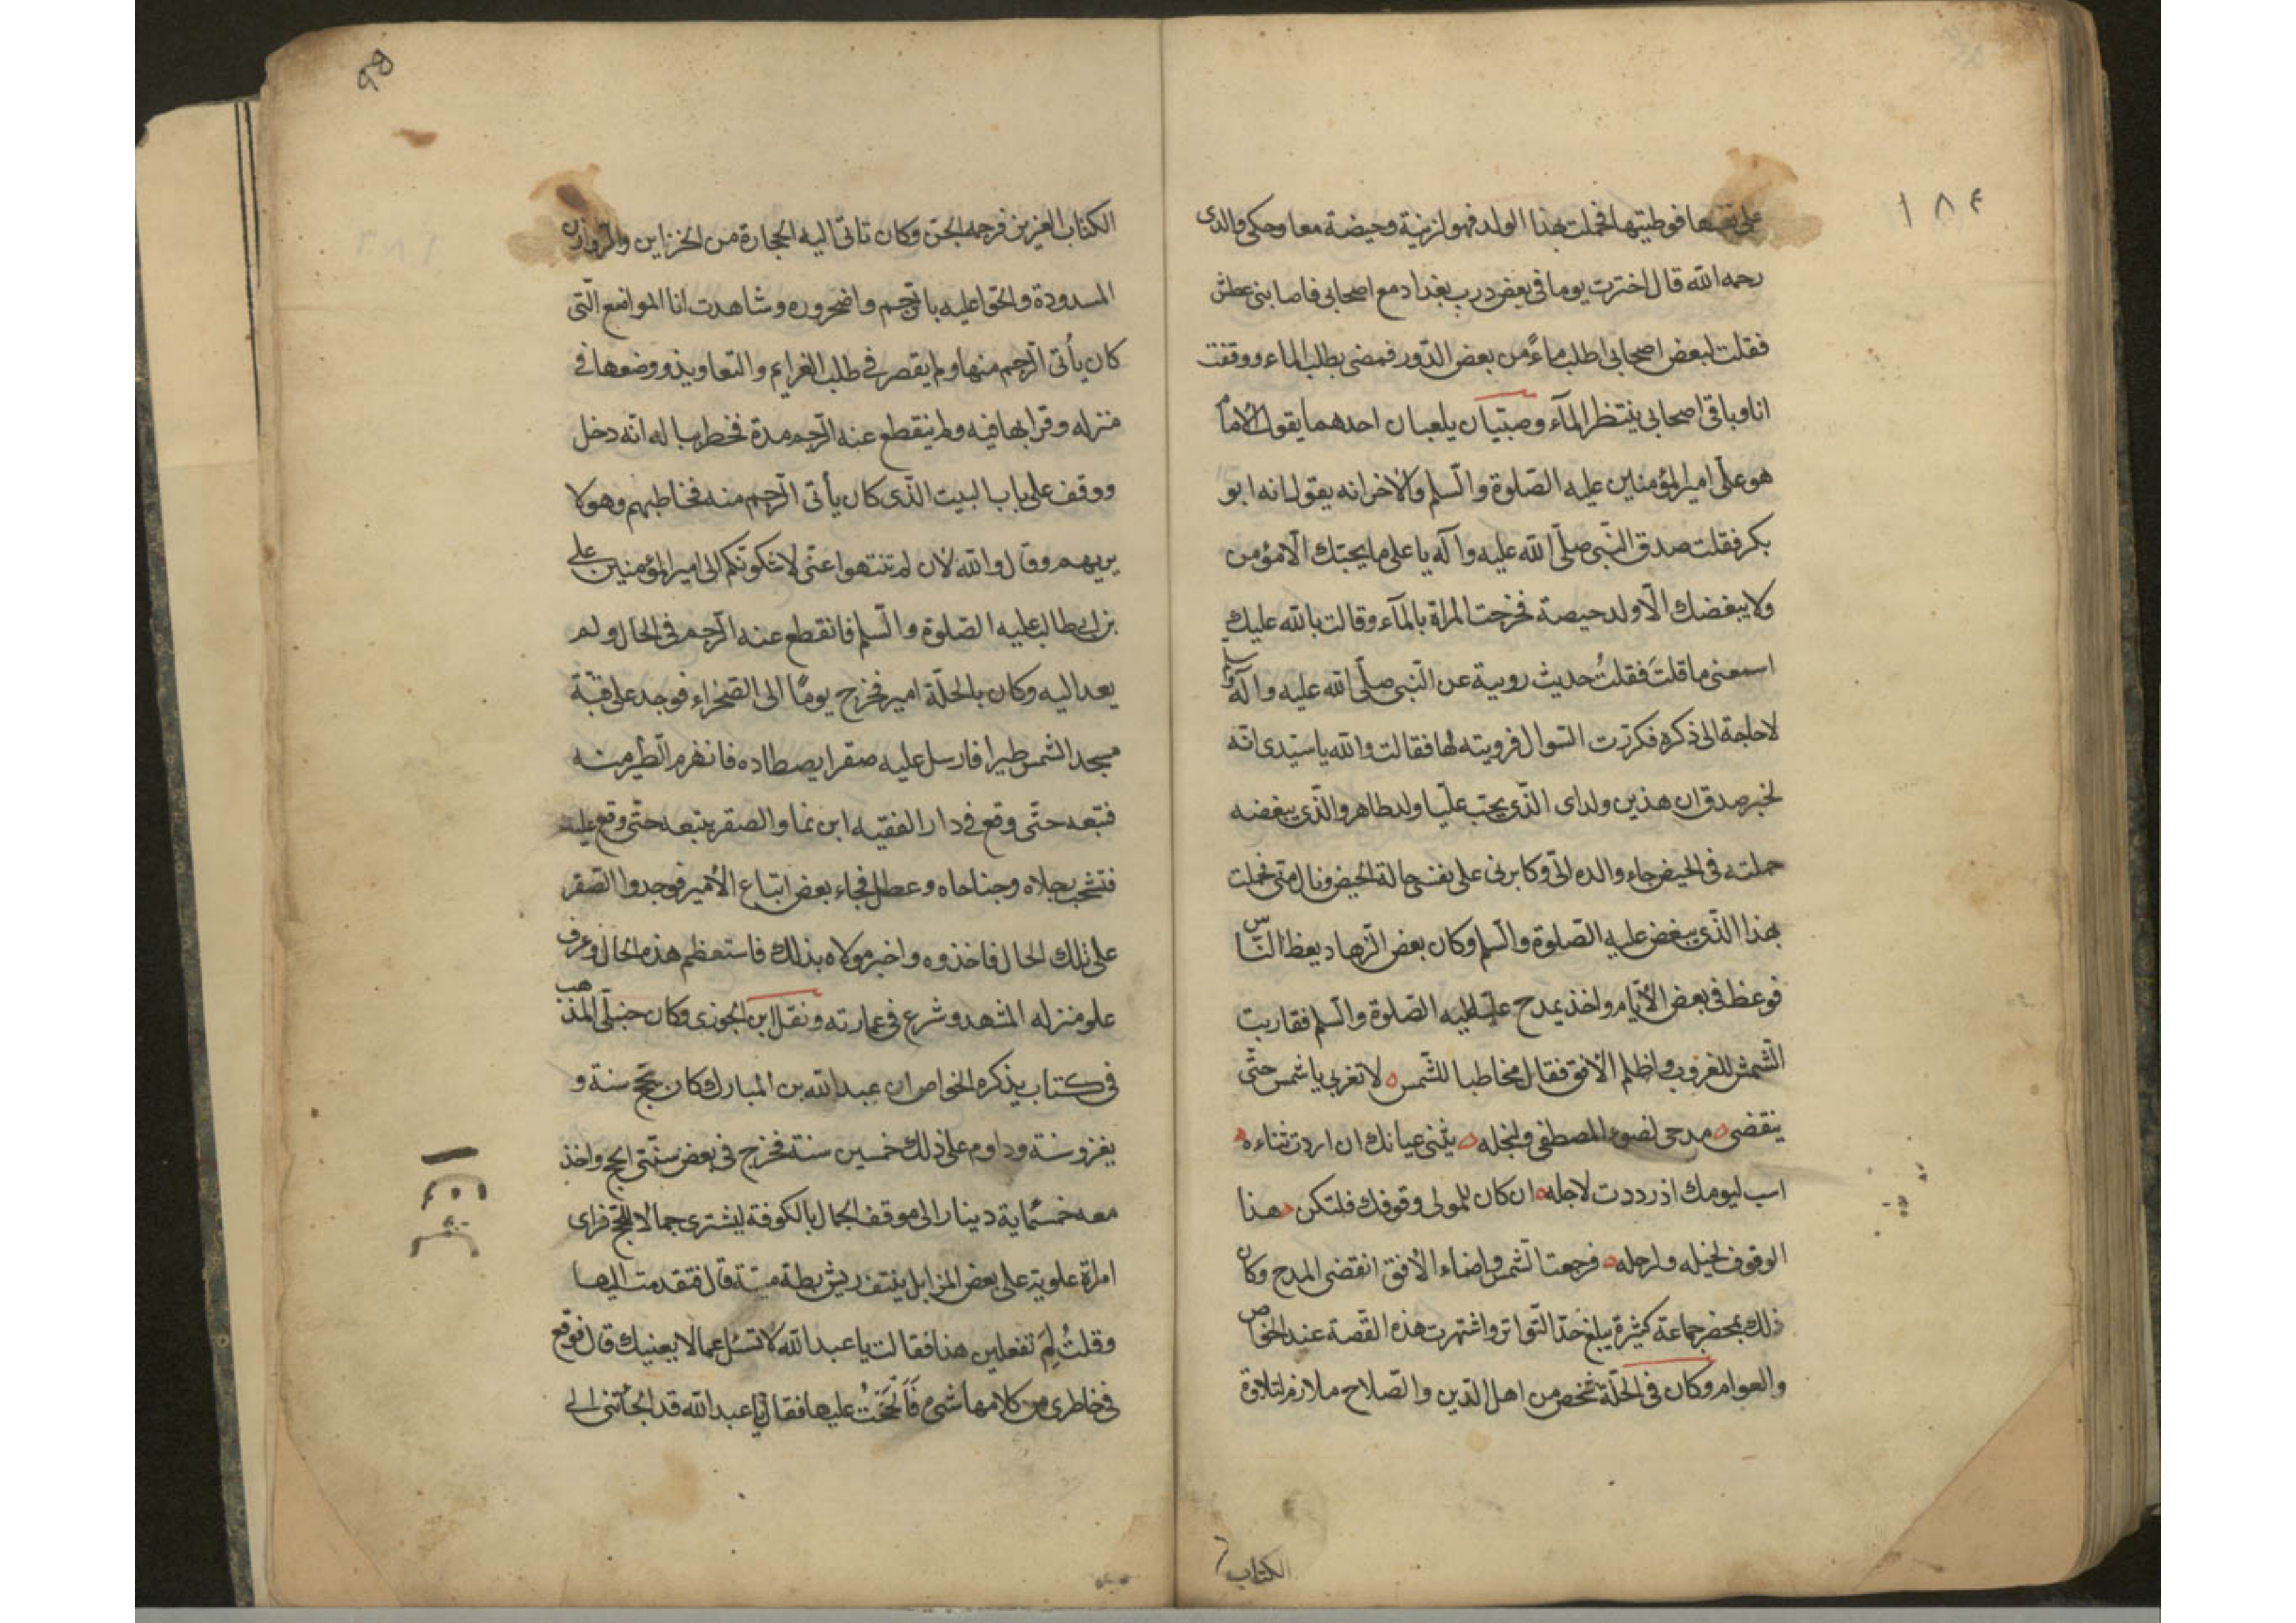 ١٨٤
على نفسها فوطيتها فحملت بهذا الولد فهو لزنية وحيضة معا وحكى والدى
رحمه الله قال اخترت يوما فى بعض درب بغداد مع اصحابى فاصابنى عطش
فقلت لبعض اصحابى اطلب ماءً من بعض الدّور فمضى يطلب الماء ووقفت
انا وباقى اصحابى ينتظر المآء وصبّيان يلعبان احدهما يقول الامام
هو علّى امير المؤمنين عليه الصّلوة والسّلم والاخر انه يقول انه ابو
بكر فقلت صدق النّبى صلّى الله عليه وآله يا على ما يحبّك الّا مؤمن
ولا يبغضك الّا ولد حيصة فخرجت المراة بالمآء وقالت بالله عليك
اسمعنى ما قلتَ فقلتُ حديث رويية عن النّبى صلّى الله عليه وآله وسلم
لا حاجة الى ذكره فكرّرت السّوال فرويته لها فقالت والله يا سيّدى انّه
لخبر صدق ان هذين ولداى الّذى يحبّ عليّا ولد طاهر والّذى يبغضه
حملته فى الحيض جاء والده الىّ وكابرنى على نفسى حالة الحيض ونال منّى فحملت
بهذا الّذى يبغض عليه الصّلوة والسّلم وكان بعض الزّهاد يعظ النّاس
فوعظ فى بعض الأيّام واخذ يمدح عليّا عليه الصّلوة والسّلم فقاربت
الشّمش للغروب واظلم الأفق فقال مخاطبا للشّمس لا تغربى يا شمس حتّى
ينقضى مدحى لضوء المصطفى ولنجله يثنى عيانك ان اردت ثناءه
اسب ليومك اذ رددت لاجله ان كان للمولى وقوفك فلتكن هذا
الوقوف لخيله ولرجله فرجعت الشّمس واضاء الأفق انقضى المدح وكان
ذلك بمحضر جماعة كثيرة يبلغ حدّ التّواتر واشتهرت هذه القصّة عند الخواص
والعوام وكان فى الحلّة شخص من اهل الدّين والصّلاح ملازم لتلاوة
الكتاب
الكتاب العزيز فرجمه الجنّ وكان تاتى اليه الحجارة من الخزاين والروازن
المسدودة والحّوا عليه بالرّجم واضجروه وشاهدت انا المواضع الّتى
كان يأتى الرّجم منها ولم يقصر فى طلب الغرايم والتعاويذ ووضعها فى
منزله وقرا بها فيه ولم ينقطع عنه الرّجم مدة فخطر بباله انّه دخل
ووقف على باب البيت الذّى كان يأتى الرّجم منه فخاطبهم وهو لا
يريهم وقال والله لان لم تنتهوا عنّى لاشكونّكم الى امير المؤمنين على
بن ابى طالب عليه الصّلوة والسّلم فانقطع عنه الرّجم فى الحال ولم
يعد اليه وكان بالحلّة امير فخرج يومًا الى الصّحراء فوجد على قبّة
مسجد الشمس طيرا فارسل عليه صقرا يصطاده فانهزم الطّير منه
فتبعه حتّى وقع فى دار الفقيه ابن نما والصقر يتبعه حتّى وقع عليه
فتشجّت رجلاه وجناحاه وعطل فجاء بعض اتباع الأمير فوجدوا الصّقر
على تلك الحال فاخذوه واخبر مولاه بذلك فاستعظم هذه الحال وعرف
علو منزله المشهد وشرع فى عمارته ونقل ابن الجوزى وكان حنبلّى المذهب
فى كتاب يذكره الخواص ان عبد الله بن المبارك كان يحّج سنة و
يغزو سنة وداوم على ذلك خمسين سنة فخرج فى بعض سنّتى الحج واخذ
معه خمسماية دينار الى موقف الجمال بالكوفة ليشترى جمالا للحّج فراى
امراة علوية على بعض المزابل ينتف ريش بطة ميتة قال فتقدمت اليها
وقلتُ لِمَ تفعلين هذا فقالت يا عبد الله لا تسئل عما لا يعنيك قال فوقع
فى خاطرى من كلامها شىء فَألحَحتُ عليها فقال يا عبد الله قد الجأتنى الى